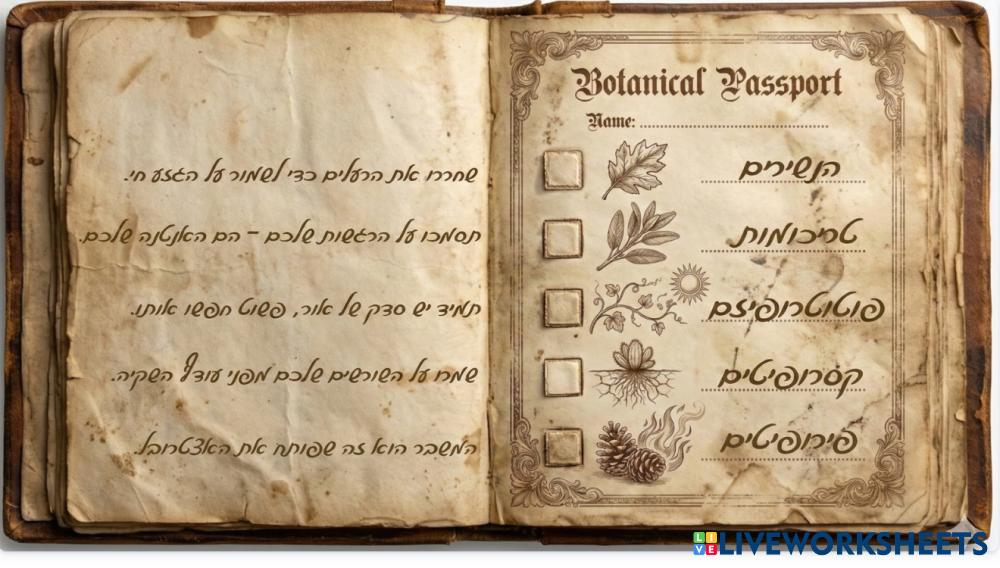 שחררו את הרעלים כדי לשמור על הגזע חי.
תסמכו על הרגשות שלכם – הם האנטנה שלכם.
תמיד יש סדק של אור, פשוט חפשו אותו.
שמרו על השורשים שלכם מפני עודף השקיה.
המשבר הוא זה שפותח את האצטרובל.
Botanical Passport
Name:
הנשירים
טריכומות
פוטוטרופיזם
קסרופיטים
פירופיטים
LIVEWORKSHEETS